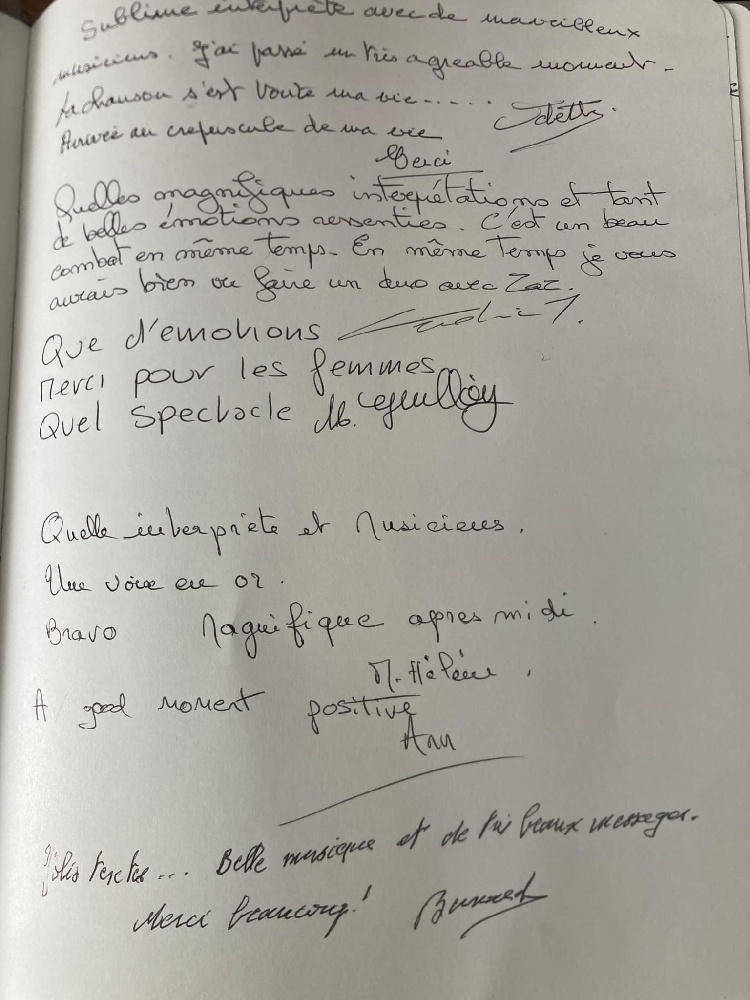 Sublime interprète avec de merveilleux
musiciens. J'ai passé un très agreable moment.
La chanson s'est toute ma vie.....
Arrivée au crepuscule de ma vie Odette.
Merci
Quelles magnifiques interprétations et tant
de belles émotions ressenties. C'est un beau
combat en même temps. En même temps je vous
aurais bien vu faire un duo avec Zaz.
Que d'emotions
Merci pour les femmes
Quel spectacle M.
Quelle interprète et Musiciens.
Une voix en or.
Bravo Magnifique apres midi.
M. Hélène.
A good moment positive
Ann
Jolis textes... Belle musique et de très beaux messages.
Merci beaucoup!